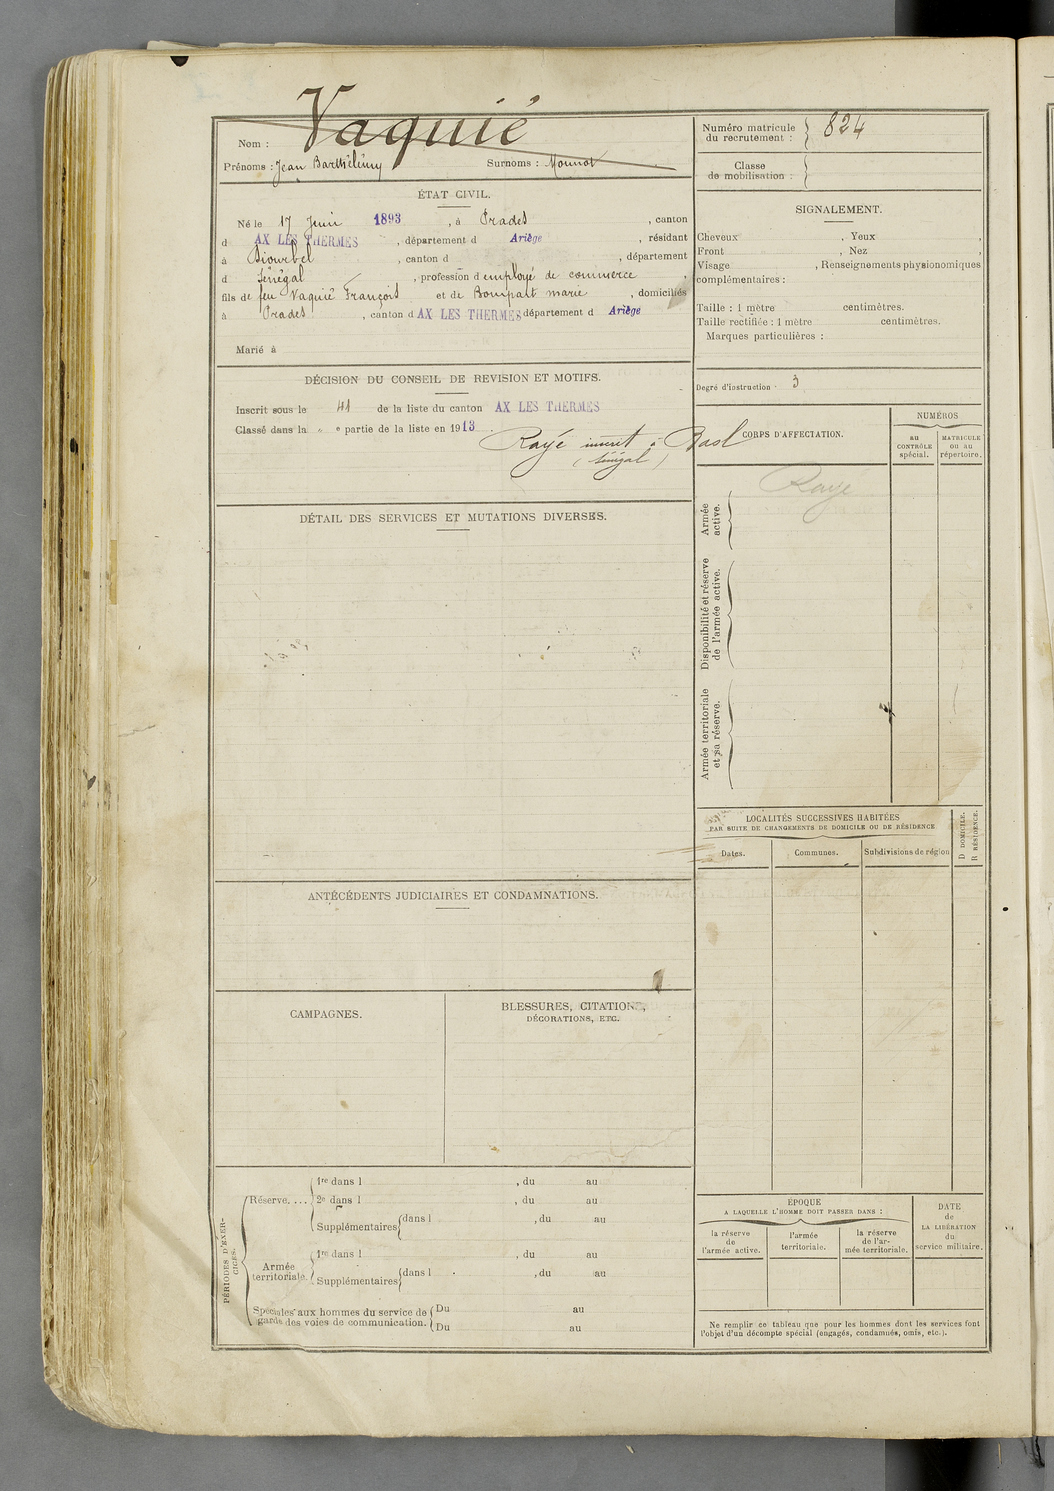 Nom : Vaquié
Prénoms : Jean Barthélémy Surnoms : Mounot
Numéro matricule du recrutement : 824
Classe de mobilisation :
ÉTAT CIVIL.
Né le 17 Juin 1893, à Prades, canton
d AX LES THERMES, département d Ariège, résidant
à Diourbel, canton d , département
d Sénégal, profession d employé de commerce,
fils de feu Vaquié François et de Bompart marie, domiciliés
à Prades, canton d AX LES THERMES département d Ariège
Marié à
SIGNALEMENT.
Cheveux , Yeux ,
Front , Nez ,
Visage , Renseignements physionomiques
complémentaires :
Taille : 1 mètre centimètres.
Taille rectifiée : 1 mètre centimètres.
Marques particulières :
Degré d'instruction · 3
DÉCISION DU CONSEIL DE REVISION ET MOTIFS.
Inscrit sous le 41 de la liste du canton AX LES THERMES
Classé dans la e partie de la liste en 1913.
Rayé inscrit à
(Sénégal)
CORPS D'AFFECTATION.
NUMÉROS
au CONTRÔLE spécial.
MATRICULE ou au répertoire.
Rayé
Armée active.
Disponibilité et réserve de l'armée active.
Armée territoriale et sa réserve.
DÉTAIL DES SERVICES ET MUTATIONS DIVERSES.
LOCALITÉS SUCCESSIVES HABITÉES
PAR SUITE DE CHANGEMENTS DE DOMICILE OU DE RÉSIDENCE
D DOMICILE.
R RÉSIDENCE.
Dates. Communes. Subdivisions de région
ANTÉCÉDENTS JUDICIAIRES ET CONDAMNATIONS.
CAMPAGNES.
BLESSURES, CITATIONS,
DÉCORATIONS, ETC.
PÉRIODES D'EXERCICES.
Réserve....
1re dans l , du au
2e dans l , du au
Supplémentaires dans l , du au
, du au
Armée territoriale.
1re dans l , du au
Supplémentaires dans l , du au
Spéciales aux hommes du service de garde des voies de communication.
Du au
Du au
ÉPOQUE
A LAQUELLE L'HOMME DOIT PASSER DANS :
la réserve de l'armée active.
l'armée territoriale.
la réserve de l'armée territoriale.
DATE de LA LIBÉRATION du service militaire.
Ne remplir ce tableau que pour les hommes dont les services font
l'objet d'un décompte spécial (engagés, condamnés, omis, etc.).